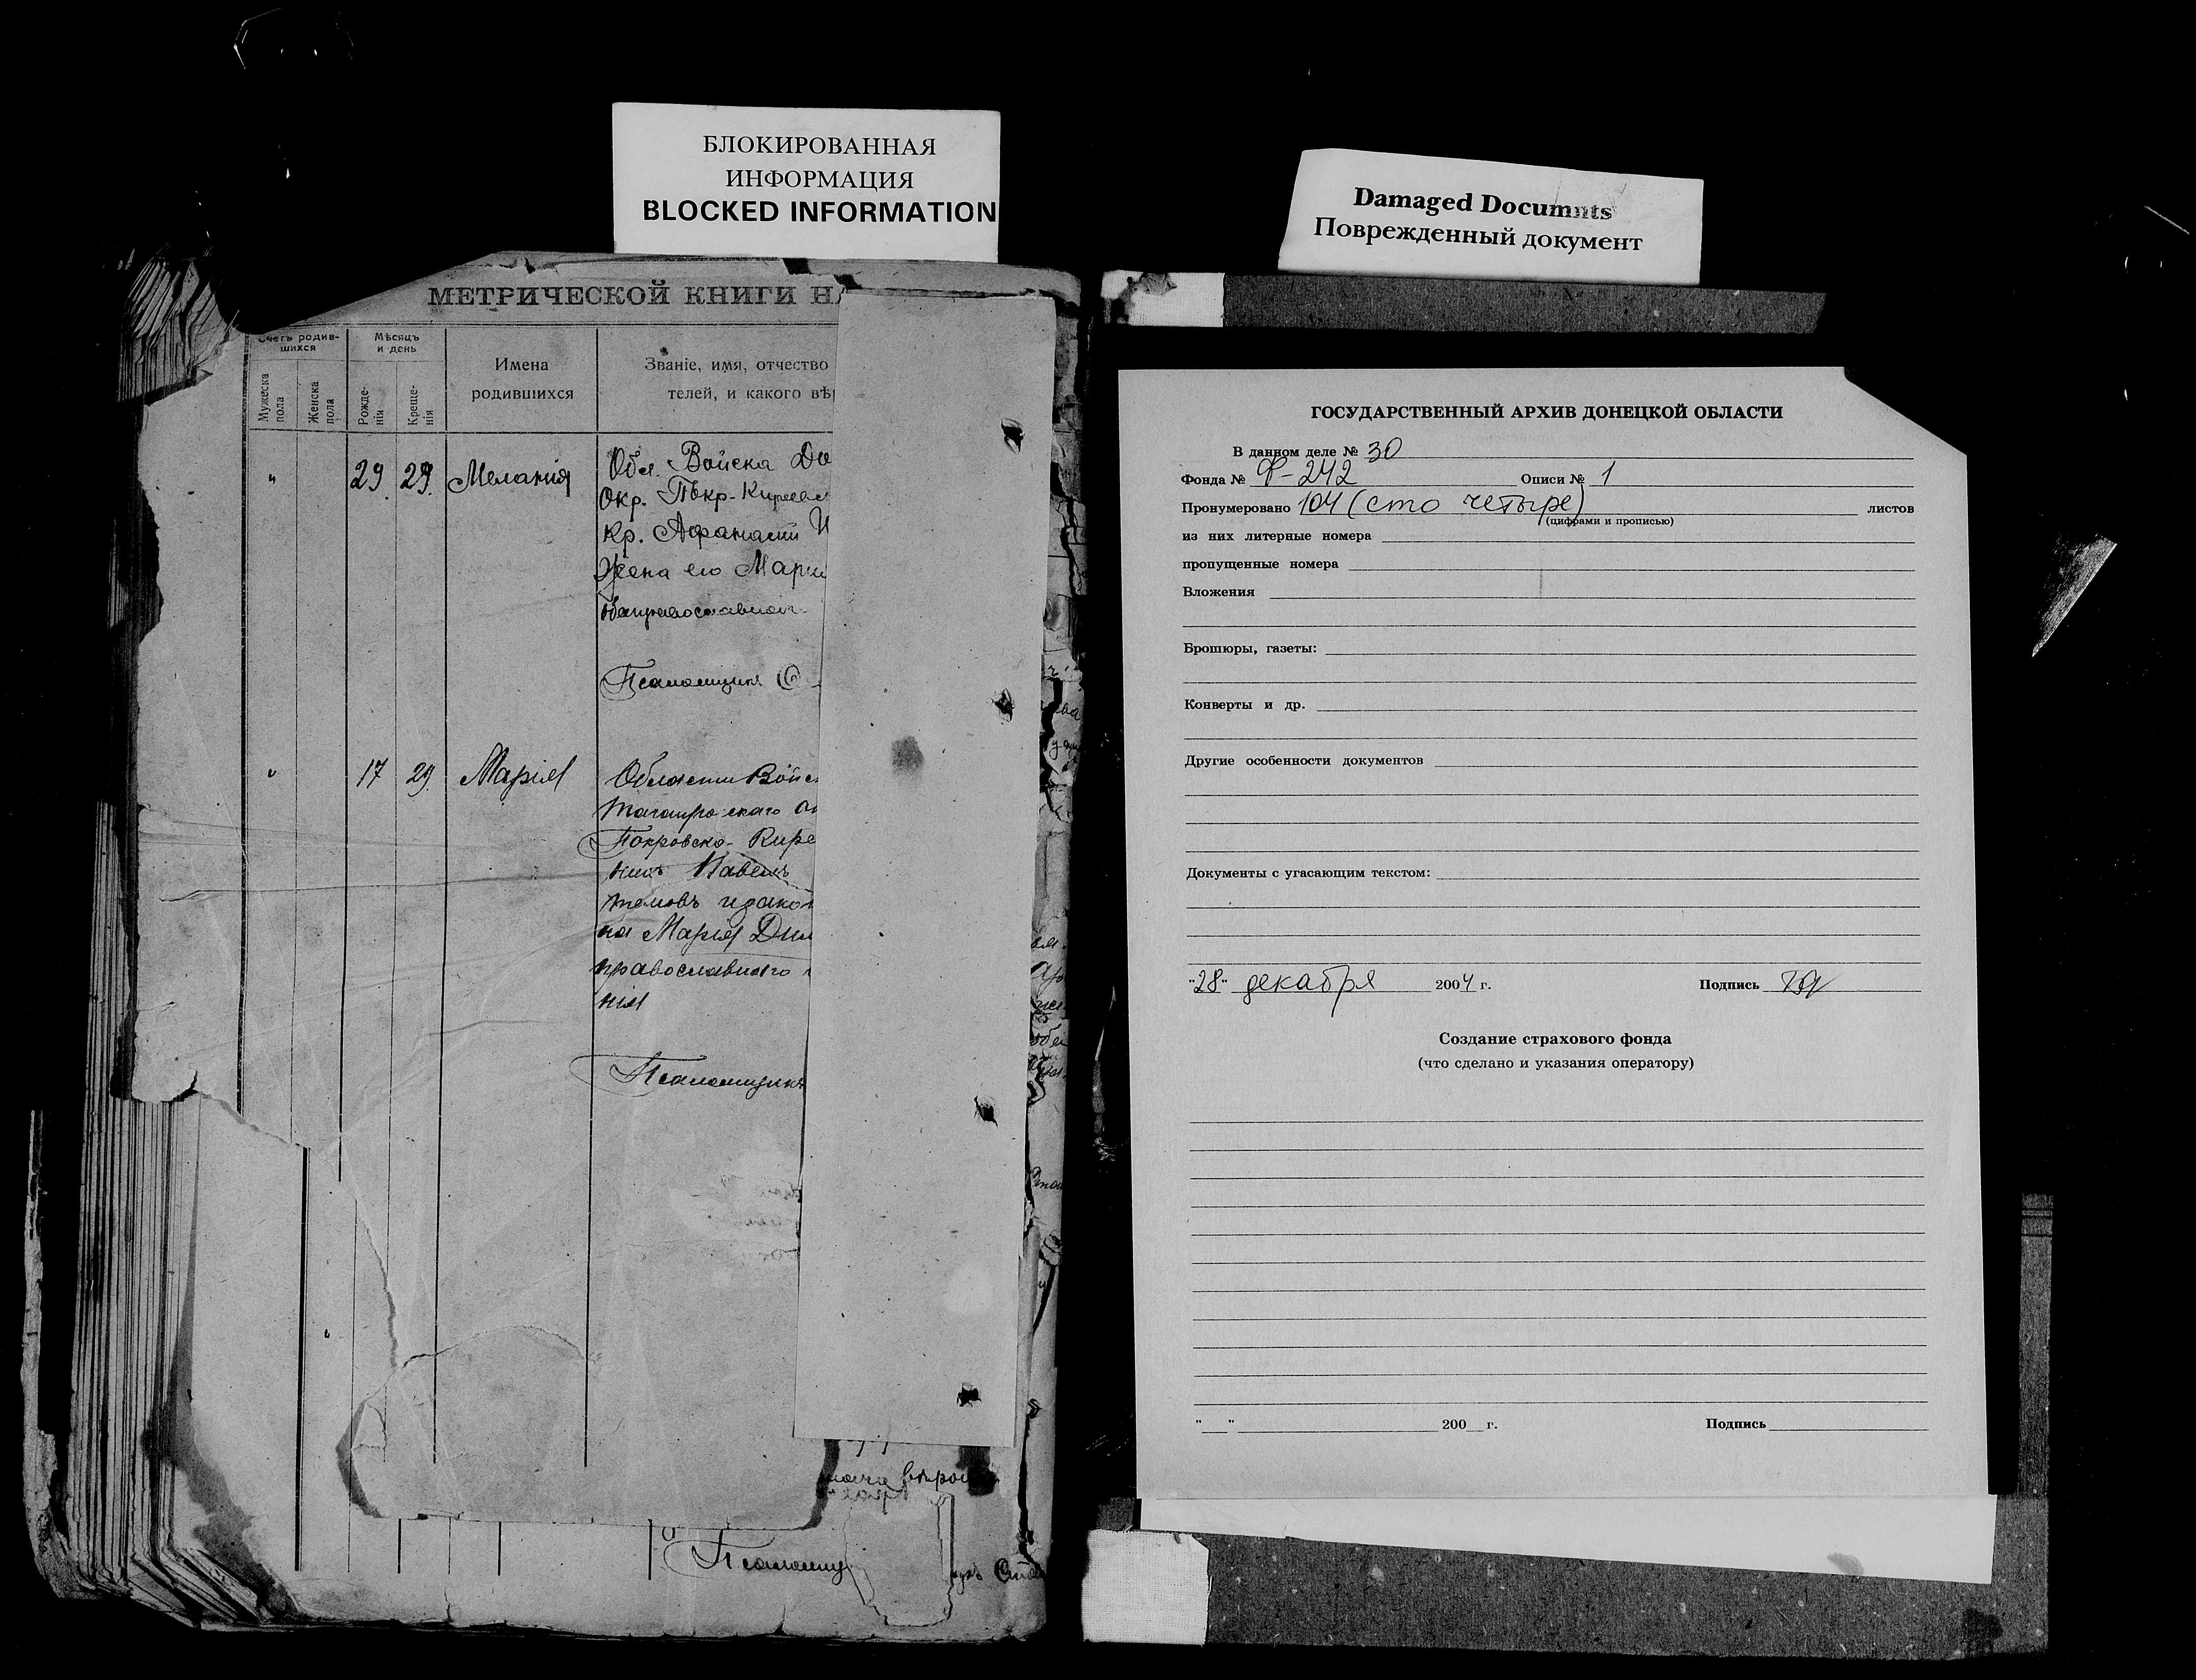 БЛОКИРОВАННАЯ
ИНФОРМАЦИЯ
BLOCKED INFORMATION
Damaged Documnts
Поврежденный документ
МЕТРИЧЕСКОЙ КНИГИ НА
Счетъ родив-
шихся
Мѣсяцъ
и день
Мужеска
пола
Женска
пола
Рожде-
нія
Креще-
нія
Имена
родившихся
Званіе, имя, отчество
телей, и какого вѣр
" 29 29. Меланія
Обл. Войска До
Окр. Покр-Киреевс
Кр. Афанасій И
Жена его Марія
православнаго
Псаломщикъ
" 17 29. Марія
Области Войс
Таганрогскаго ок
Покровско-Кире
нинъ Павелъ
темовъ и закон
на Марія Дим
православнаго
нія
Псаломщикъ
Псаломщ
ГОСУДАРСТВЕННЫЙ АРХИВ ДОНЕЦКОЙ ОБЛАСТИ
В данном деле № 30
Фонда № Ф-242 Описи № 1
Пронумеровано 104 (сто четыре) листов
(цифрами и прописью)
из них литерные номера
пропущенные номера
Вложения
Брошюры, газеты:
Конверты и др.
Другие особенности документов
Документы с угасающим текстом:
"28" декабря 2004 г. Подпись
Создание страхового фонда
(что сделано и указания оператору)
"__" 200__ г. Подпись